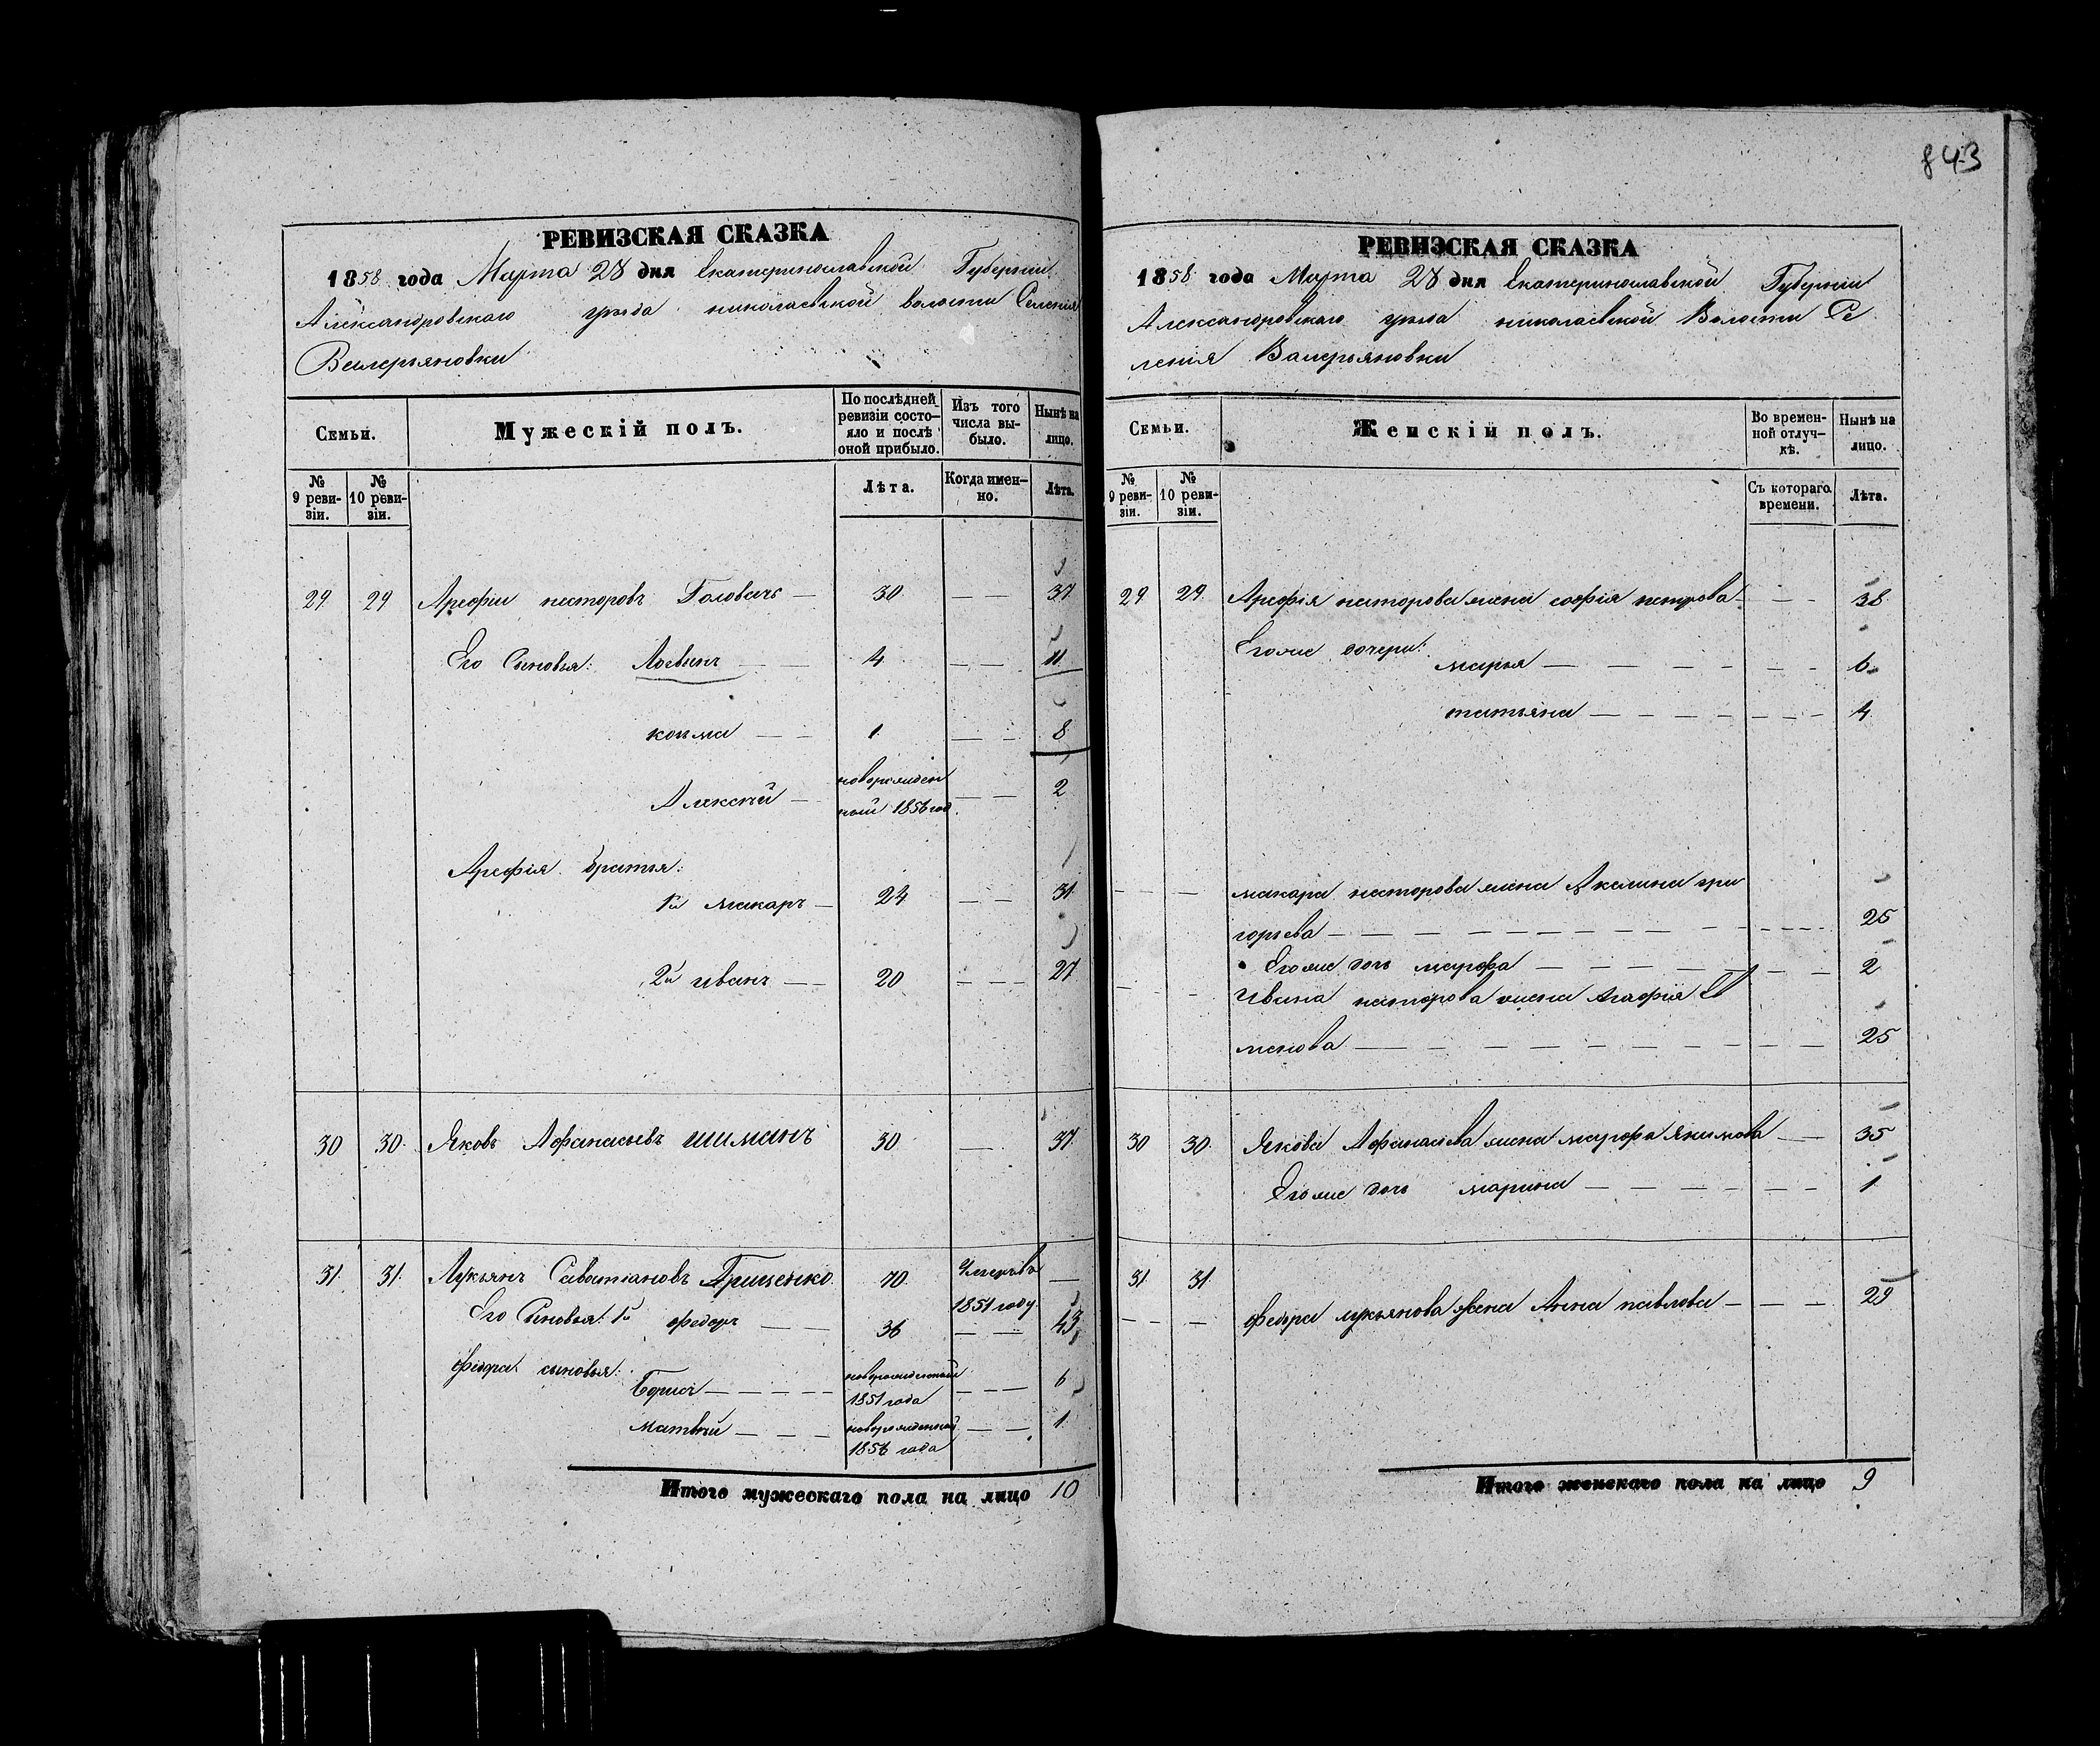 843
РЕВИЗСКАЯ СКАЗКА
1858 года Марта 28 дня Екатеринославской Губернии
Александровскаго уѣзда николаевской волости Селенія
Валерьяновки
Семьи.
Мужескій полъ.
По послѣдней ревизіи состо-яло и послѣ оной прибыло.
Изъ того числа вы-было.
Нынѣ на лицо.
№ 9 реви-зіи.
№ 10 реви-зіи.
Лѣта.
Когда имен-но.
Лѣта.
29 29 Арефiи несторовъ Головачъ — 30 — — 37
Его Сыновья: — — 4 — — 11
козма — — 1 — — 8
Алексѣй — новорожден — — 2
ный 1856 год
Арефія братья:
1й макаръ — 24 — — 31
2й иванъ — — 20 — — — 27
30 30 Яковъ Афанасьевъ шиманъ 30 — 37
31 31 Лукьянъ Саватіановъ Грищенко 70 Умеръ въ —
1851 году
Его Сыновья: 1й федоръ — — 36 — — 43
федора сыновья:
Борисъ — — — — — новорожденный — — — 6
1851 года
матвѣй — — — новорожденный — — 1
1856 года
Итого мужескаго пола на лицо 10
РЕВИЗСКАЯ СКАЗКА
1858 года Марта 28 дня Екатеринославской Губерніи
Александровскаго уѣзда николаевской Волости Се
ленія Валерьяновки
Семьи.
Женскій полъ.
Во времен-ной отлуч-кѣ.
Нынѣ на лицо.
№ 9 реви-зіи.
№ 10 реви-зіи.
Съ котораго времени.
Лѣта.
29 29 Арефія несторова жена софія петрова — — — 38
Егоже дочери:
марья — — — — — — — 6
татьяна — — — — — — — 4
— — — макара несторова жена Акилина гри
горьева — — — — — — — — — — — — 25
Егоже дочь марфа — — — — — — — 2
— — — Ивана несторова жена Агафія Се
менова — — — — — — — — — — 25
30 30 Якова Афанасьева жена марфа Якимова — — 35
Егоже дочь марина — — — — — — 1
31 31
— — — федора лукьянова жена Анна павлова — — — 29
Итого женскаго пола на лицо 9